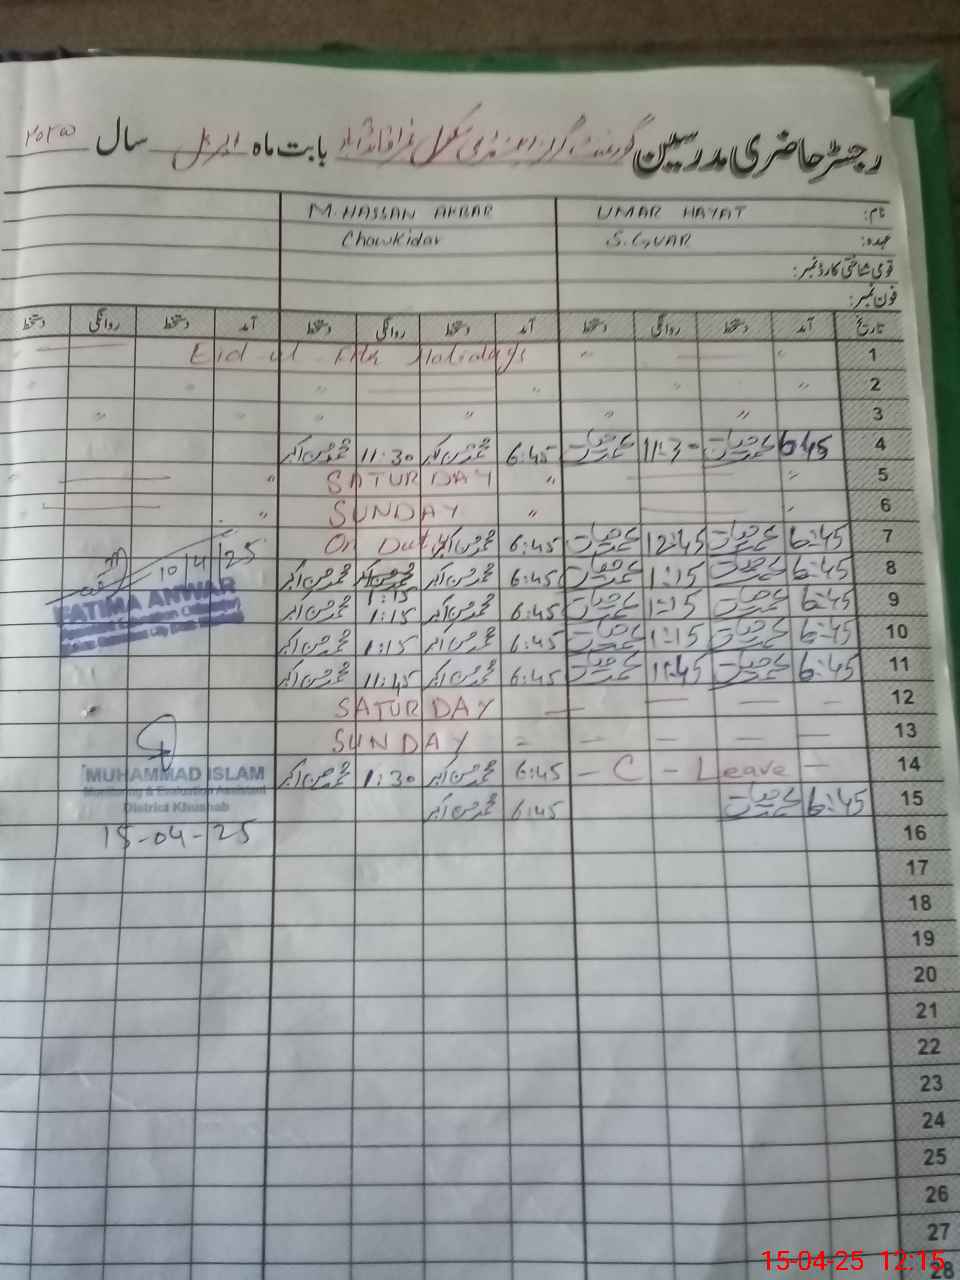 رجسٹر حاضری مدرسین گورنمنٹ گرلز پرائمری سکول بابت ماہ اپریل سال ۲۰۲۵
نام: UMAR HAYAT M. HASSAN AKBAR
عہدہ: S.GUAR Chowkidar
قومی شناختی کارڈ نمبر:
فون نمبر:
تاریخ آمد دستخط روانگی دستخط آمد دستخط روانگی دستخط آمد دستخط روانگی دستخط
1 " — " Eid ul Fitr Holidays —
2 " " — " — " " "
3 " " " " " "
4 6:45 عمر حیات 11:30 عمر حیات 6:45 محمد حسن اکبر 11:30 محمد حسن اکبر
5 " — " SATURDAY " — "
6 " — " SUNDAY " —
7 6:45 عمر حیات 12:45 عمر حیات 6:45 محمد حسن اکبر On Duty
8 6:45 عمر حیات 1:15 عمر حیات 6:45 محمد حسن اکبر 1:15 محمد حسن اکبر
10/4/25
9 6:45 عمر حیات 1:15 عمر حیات 6:45 محمد حسن اکبر 1:15 محمد حسن اکبر
FATIMA ANWAR
10 6:45 عمر حیات 1:15 عمر حیات 6:45 محمد حسن اکبر 1:15 محمد حسن اکبر
11 6:45 عمر حیات 11:45 عمر حیات 6:45 محمد حسن اکبر 11:45 محمد حسن اکبر
12 — — — — SATURDAY
13 — — — — – SUNDAY
14 – C – Leave – 6:45 محمد حسن اکبر 1:30 محمد حسن اکبر
MUHAMMAD ISLAM
Monitoring & Evaluation Assistant
District Khushab
15 6:45 عمر حیات 6:45 محمد حسن اکبر
15-04-25
16
17
18
19
20
21
22
23
24
25
26
27
28
15-04-25 12:15